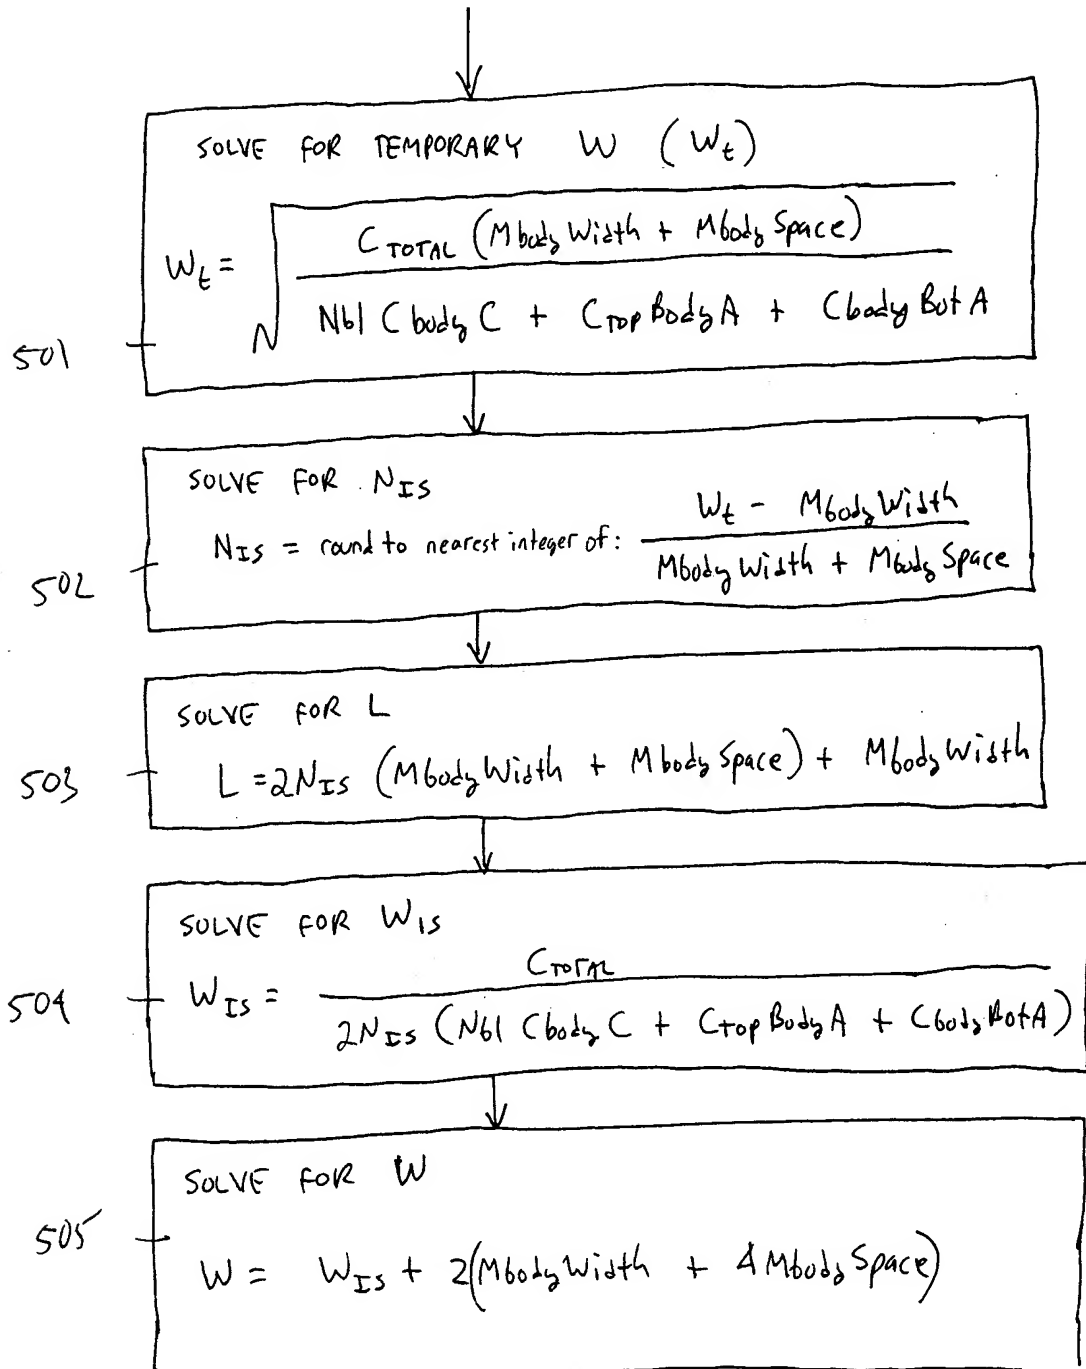 SOLVE FOR TEMPORARY W (Wt)
Wt = √ CTOTAL (Mbody Width + Mbody Space)
Nbl Cbody C + CTop Body A + Cbody Bot A
501
SOLVE FOR NIS
NIS = round to nearest integer of: Wt - Mbody Width
Mbody Width + Mbody Space
502
SOLVE FOR L
L = 2NIS (Mbody Width + Mbody Space) + Mbody Width
503
SOLVE FOR WIS
WIS = CTOTAL
2NIS (Nbl Cbody C + CTop Body A + Cbody Bot A)
504
SOLVE FOR W
W = WIS + 2(Mbody Width + 4 Mbody Space)
505